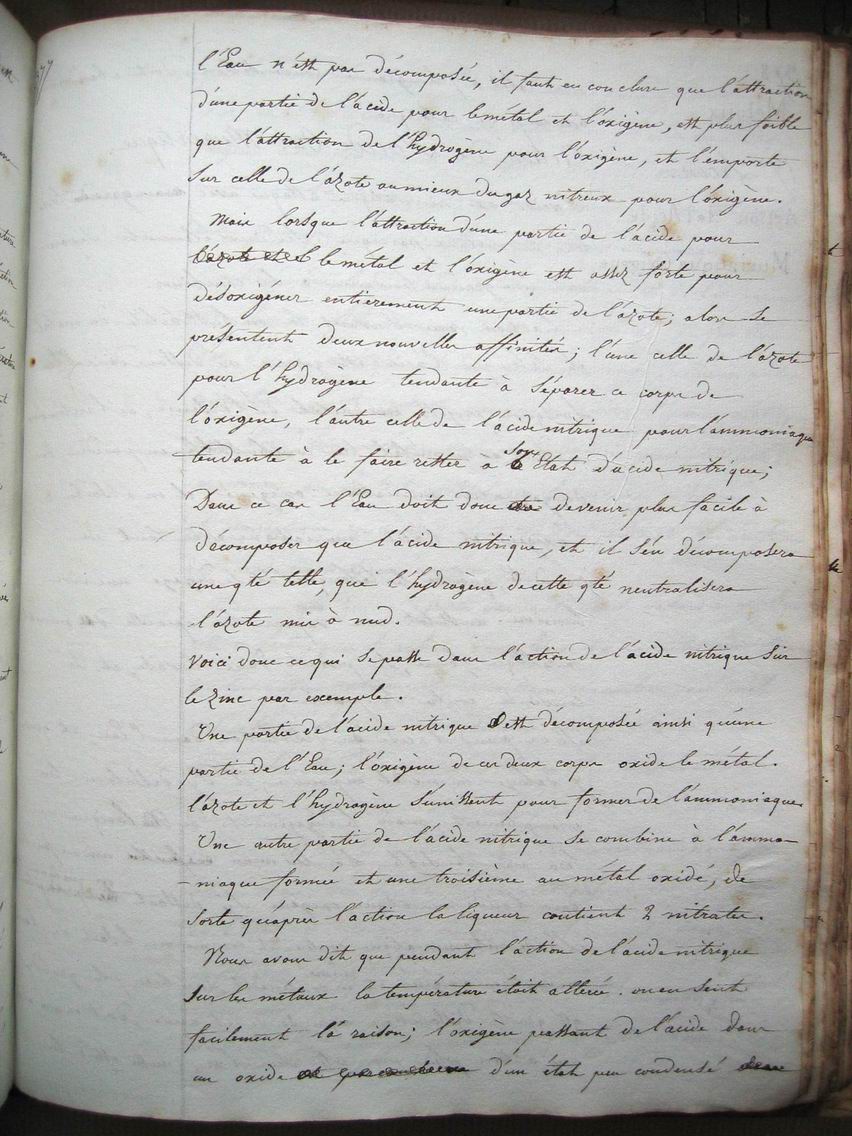 l'Eau n'est pas décomposée, il faut en conclure que l'attraction
d'une partie de l'acide pour le métal et l'oxigène, est plus foible
que l'attraction de l'hydrogène pour l'oxigène, et l'emporte
sur celle de l'azote au mieux du gaz nitreux pour l'oxigène.
Mais lorsque l'attraction d'une partie de l'acide pour
le métal et l'oxigène est assez forte pour
désoxigéner entierement une partie de l'azote; alors se
présentent deux nouvelles affinités; l'une celle de l'azote
pour l'hydrogène tendante à séparer ce corps de
l'oxigène, l'autre celle de l'acide nitrique pour l'ammoniaque
tendante à le faire rester à son Etat d'acide nitrique;
Dans ce cas l'Eau doit donc devenir plus facile à
décomposer que l'acide nitrique, et il s'en décomposera
une qté telle, que l'hydrogène de cette qté neutralisera
l'azote mis à nud.
Voici donc ce qui se passe dans l'action de l'acide nitrique sur
le zinc par exemple.
Une partie de l'acide nitrique est décomposée ainsi qu'une
partie de l'Eau; l'oxigène de ces deux corps oxide le métal.
l'azote et l'hydrogène s'unissent pour former de l'ammoniaque.
Une autre partie de l'acide nitrique se combine à l'ammo-
-niaque formée et une troisième au métal oxidé, de
sorte qu'après l'action la liqueur contient 2 nitrates.
Nous avons dit que pendant l'action de l'acide nitrique
sur les métaux la température étoit altérée. on en sent
facilement la raison; l'oxigène passant de l'acide dans
un oxide d'un état peu condensé